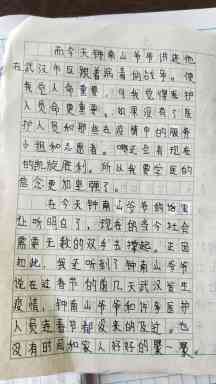 而今天钟南山爷爷讲述他
在武汉市区跟着病毒的战争。使
我觉人命重要，但我觉得医护
人员命更重要。如果没有了医
护人员和那些在疫情中的服务
小组和志愿者。哪还会有现在
的凯旋胜利。所以我要学医的
信念更加坚强了。
在今天钟南山爷爷的
让听明白了，现在的当今社会
需要无数的双手去撑起。正因
如此，我还听到了钟南山爷爷
说在过春节的前几天武汉发生
疫情，钟南山爷爷和许多医护
人员连春节都没来的及过。也
没有时间和家人好好的聚一聚